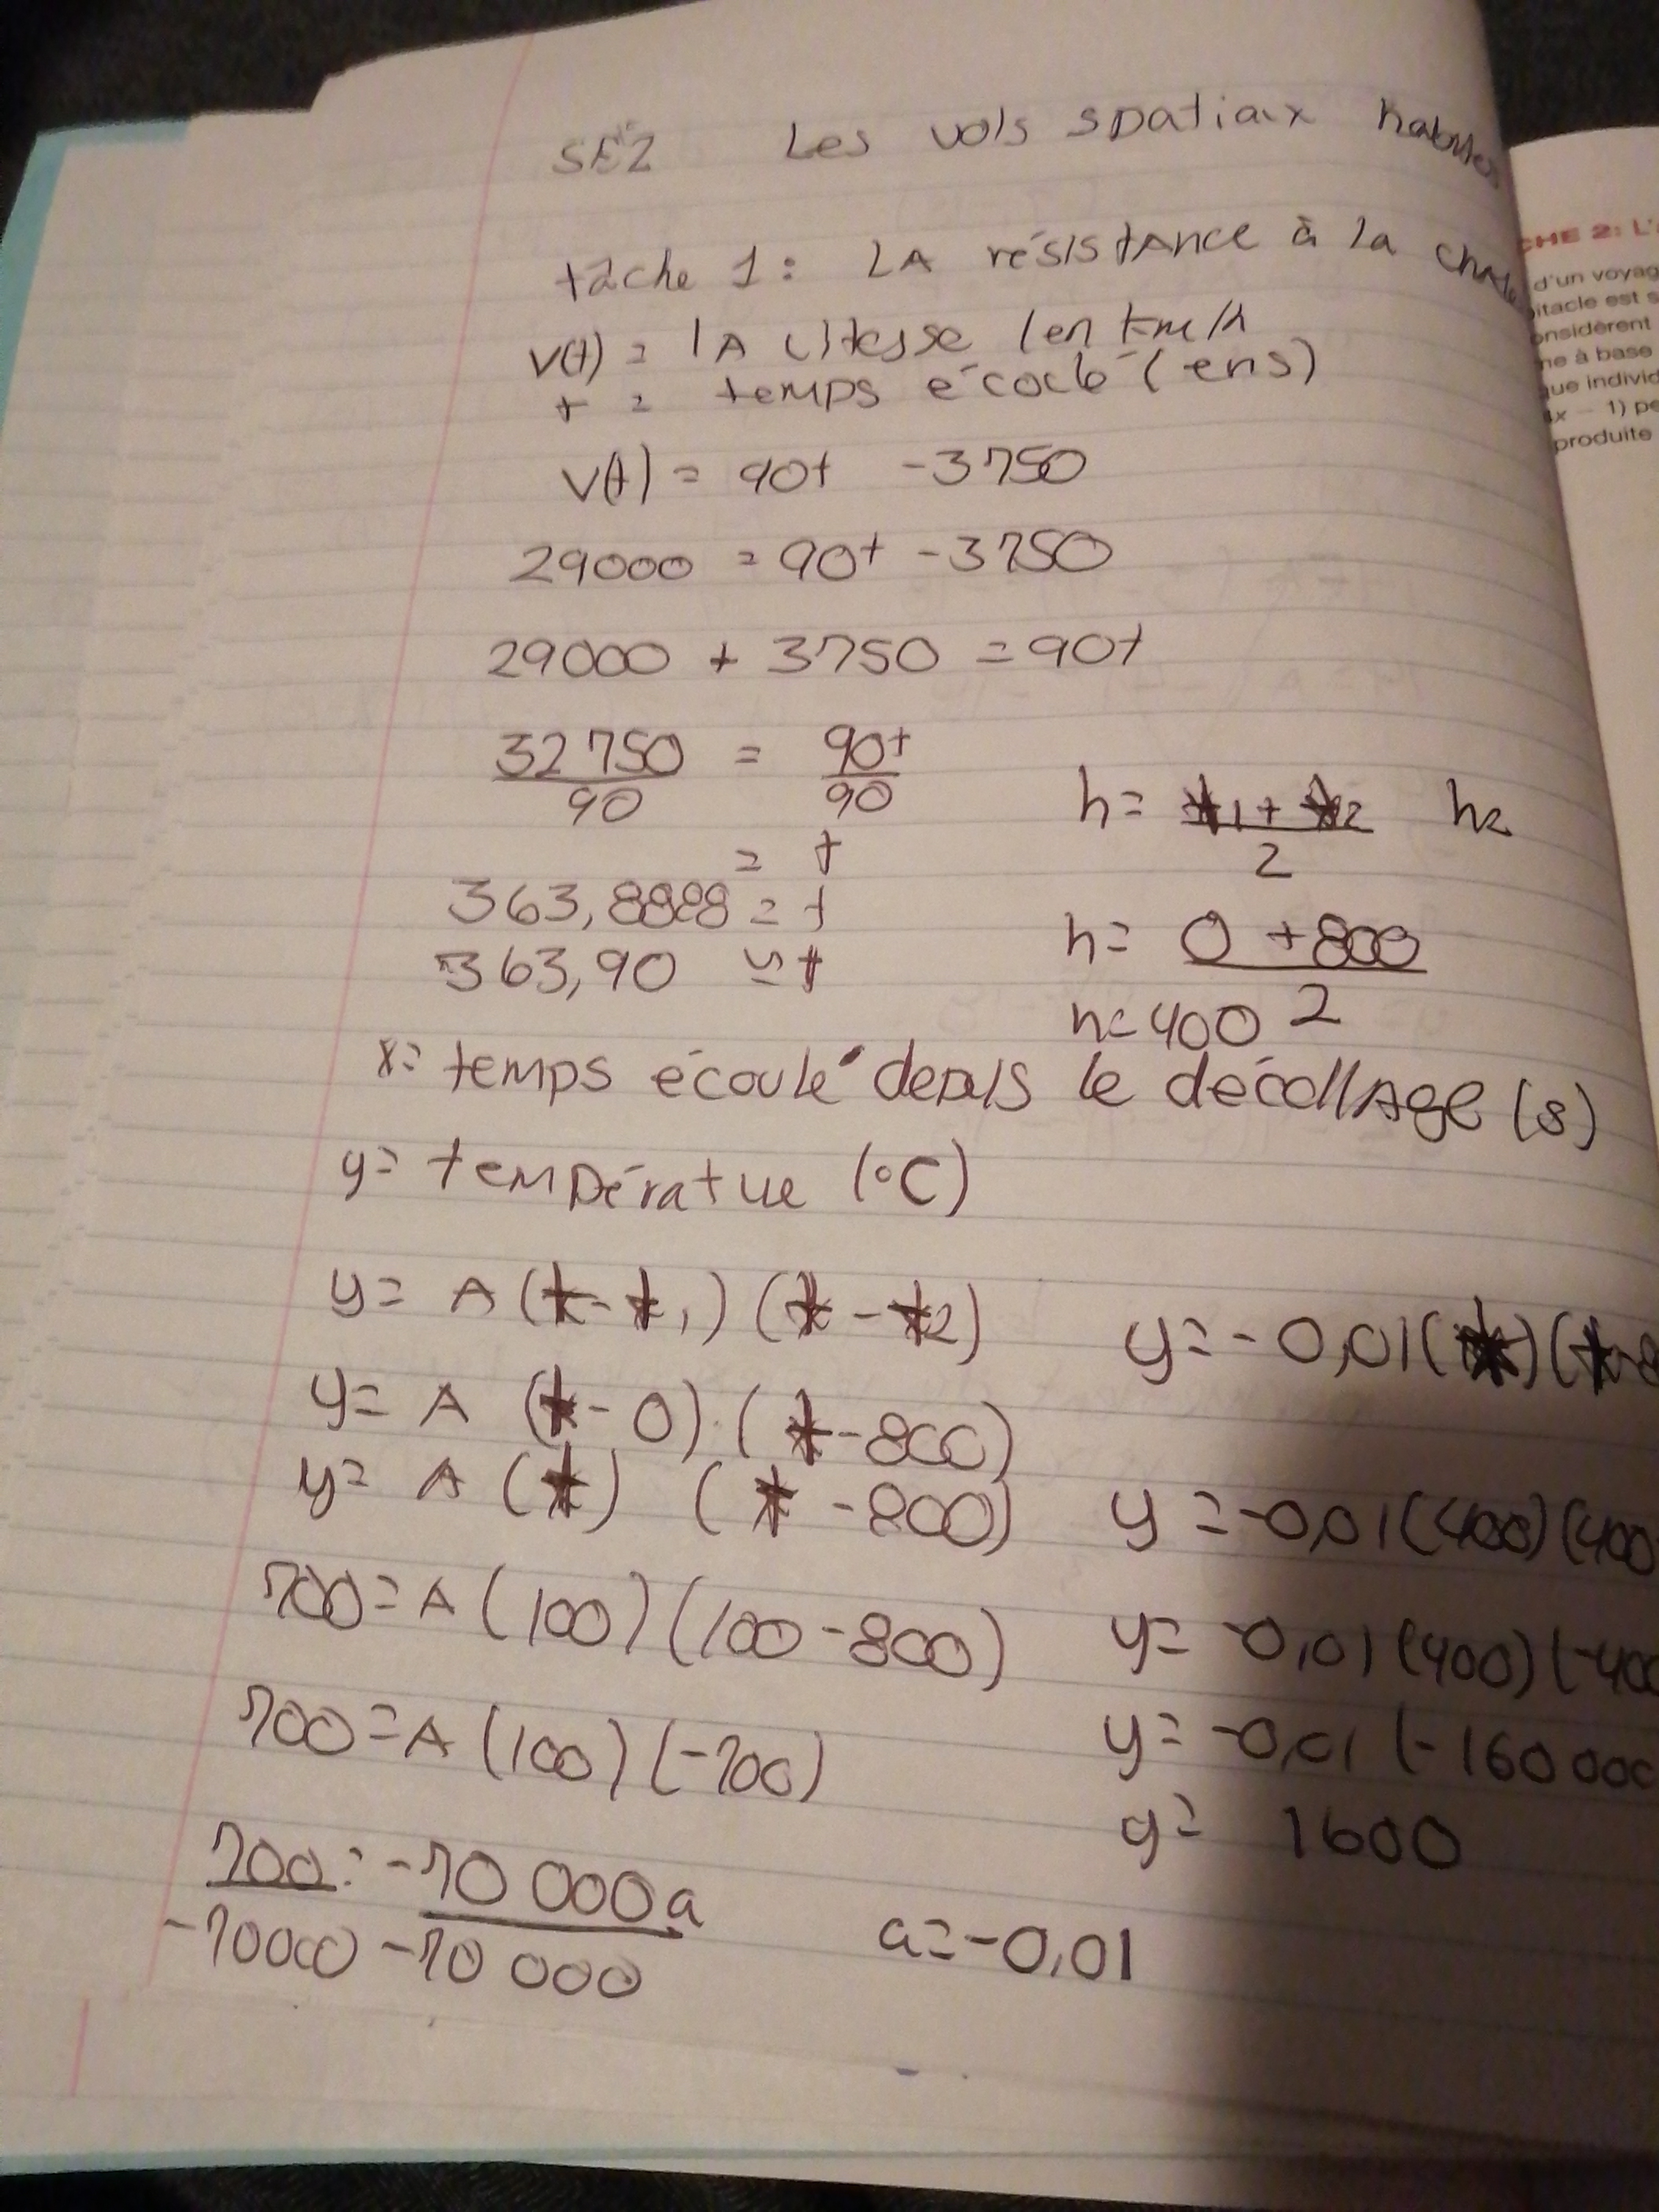 SÉ2 Les vols spatiaux habités
tâche 1: LA résistance à la
v(t) = lA vitesse (en km/h
t = temps écoulé (en s)
v(t) = 90t - 3750
29000 = 90t - 3750
29000 + 3750 = 90t
32 750 = 90t
90 90
= t
363,8888 = t
363,90 ≈ t
h = t1 + t2 h=
2
h = 0 + 800
2
h = 400
x= temps écoulé depuis le décollage (s)
y= température (°C)
y= A (t-t1) (t-t2)
y= A (t-0) (t-800)
y= A (t) (t-800)
700=A (100) (100-800)
700=A (100) (-700)
700 = -70 000a
-70000 -70 000
a=-0,01
y=-0,01(t)(t-8
y=-0,01(400)(400
y= -0,01(400)(-400
y= -0,01 (-160 000
y= 1600
CHE 2: L'
d'un voyag
itacle est s
onsidèrent
ne à base
que individ
x - 1) pe
produite